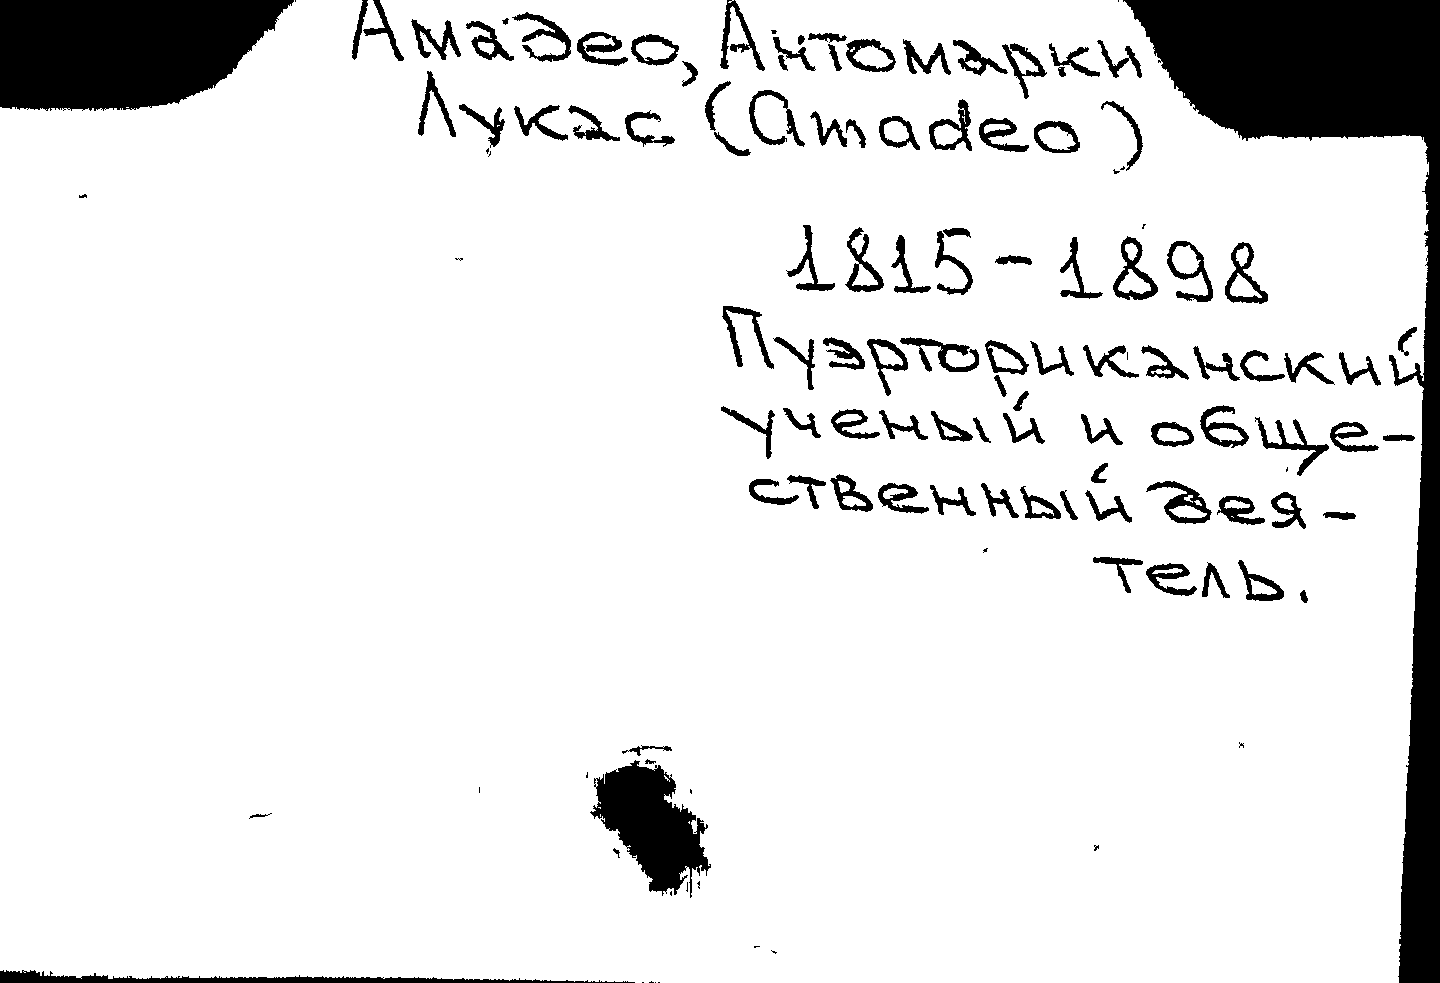 Амадео, Антомарки
Лукас (Amadeo)
1815-1898
Пуэрториканский
ученый и обще-
ственный дея-
тель.